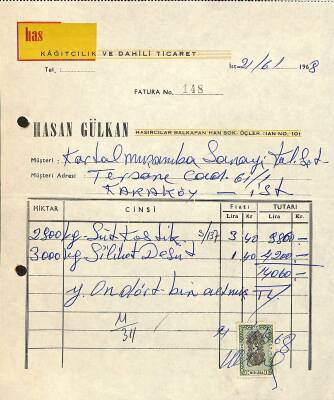 has
KÂĞITCILIK VE DAHİLİ TİCARET
Tel.: İst. 21/6/ 1968
FATURA No. 148
HASAN GÜLKAN HASIRCILAR BALKAPAN HAN SOK. ÜÇLER HAN NO. 10
Müşteri : Kartal muşamba Sanayi
Müşteri Adresi Tersane Cad. 61/1
KARAKÖY — İst
MİKTAR CİNSİ Fiati TUTARI
Lira Kr. Lira Kr.
2900 kg. 3 40 9860.-
3000 kg. 1 40 4200.-
14060.-
y. Ondört bin altmış TL.